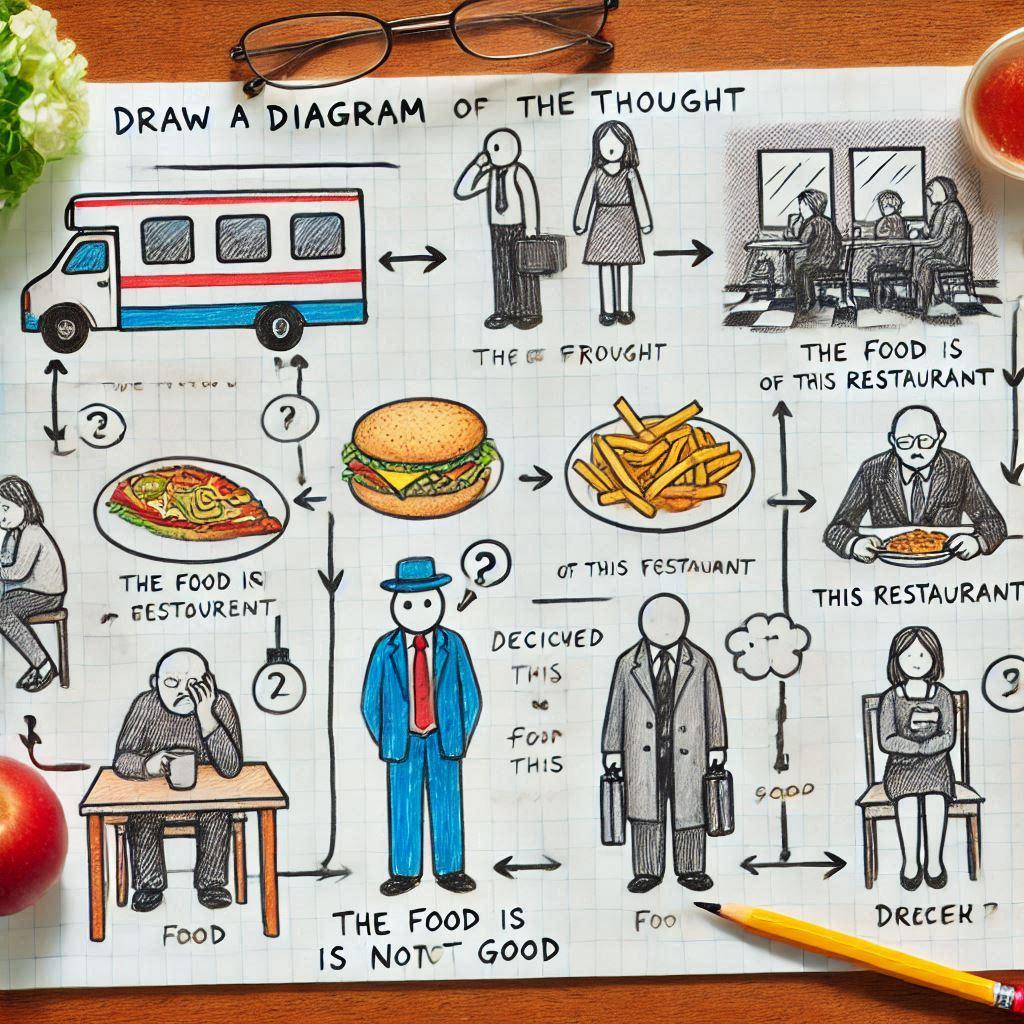 DRAW A DIAGRAM OF THE THOUGHT
FROUGHT
THE FOOD IS
OF THIS RESTAURANT
?
?
THE FOOD IS
EESTOURENT
OF THIS FESTAUANT
THIS RESTAURANT
?
2
DECICHED
THIS
FOOD
THIS
GOOD
?
FOOD
THE FOOD IS
IS NOTCT GOOD
FOO
DRECEK ?